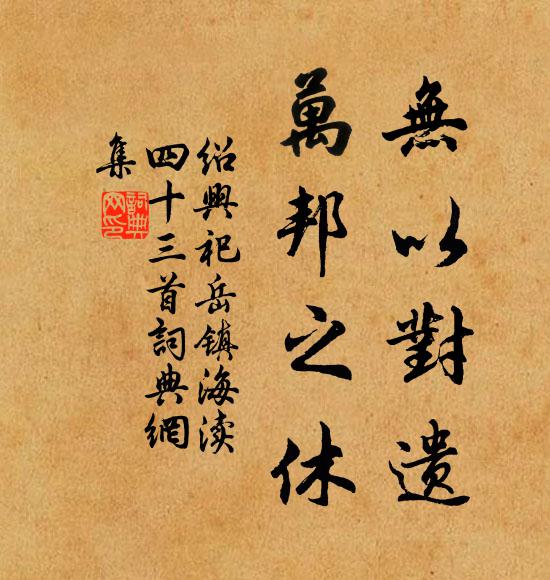 無以對遗
萬邦之休
绍興祀岳镇海渎
四十三首詞典網
集
詞典
網印